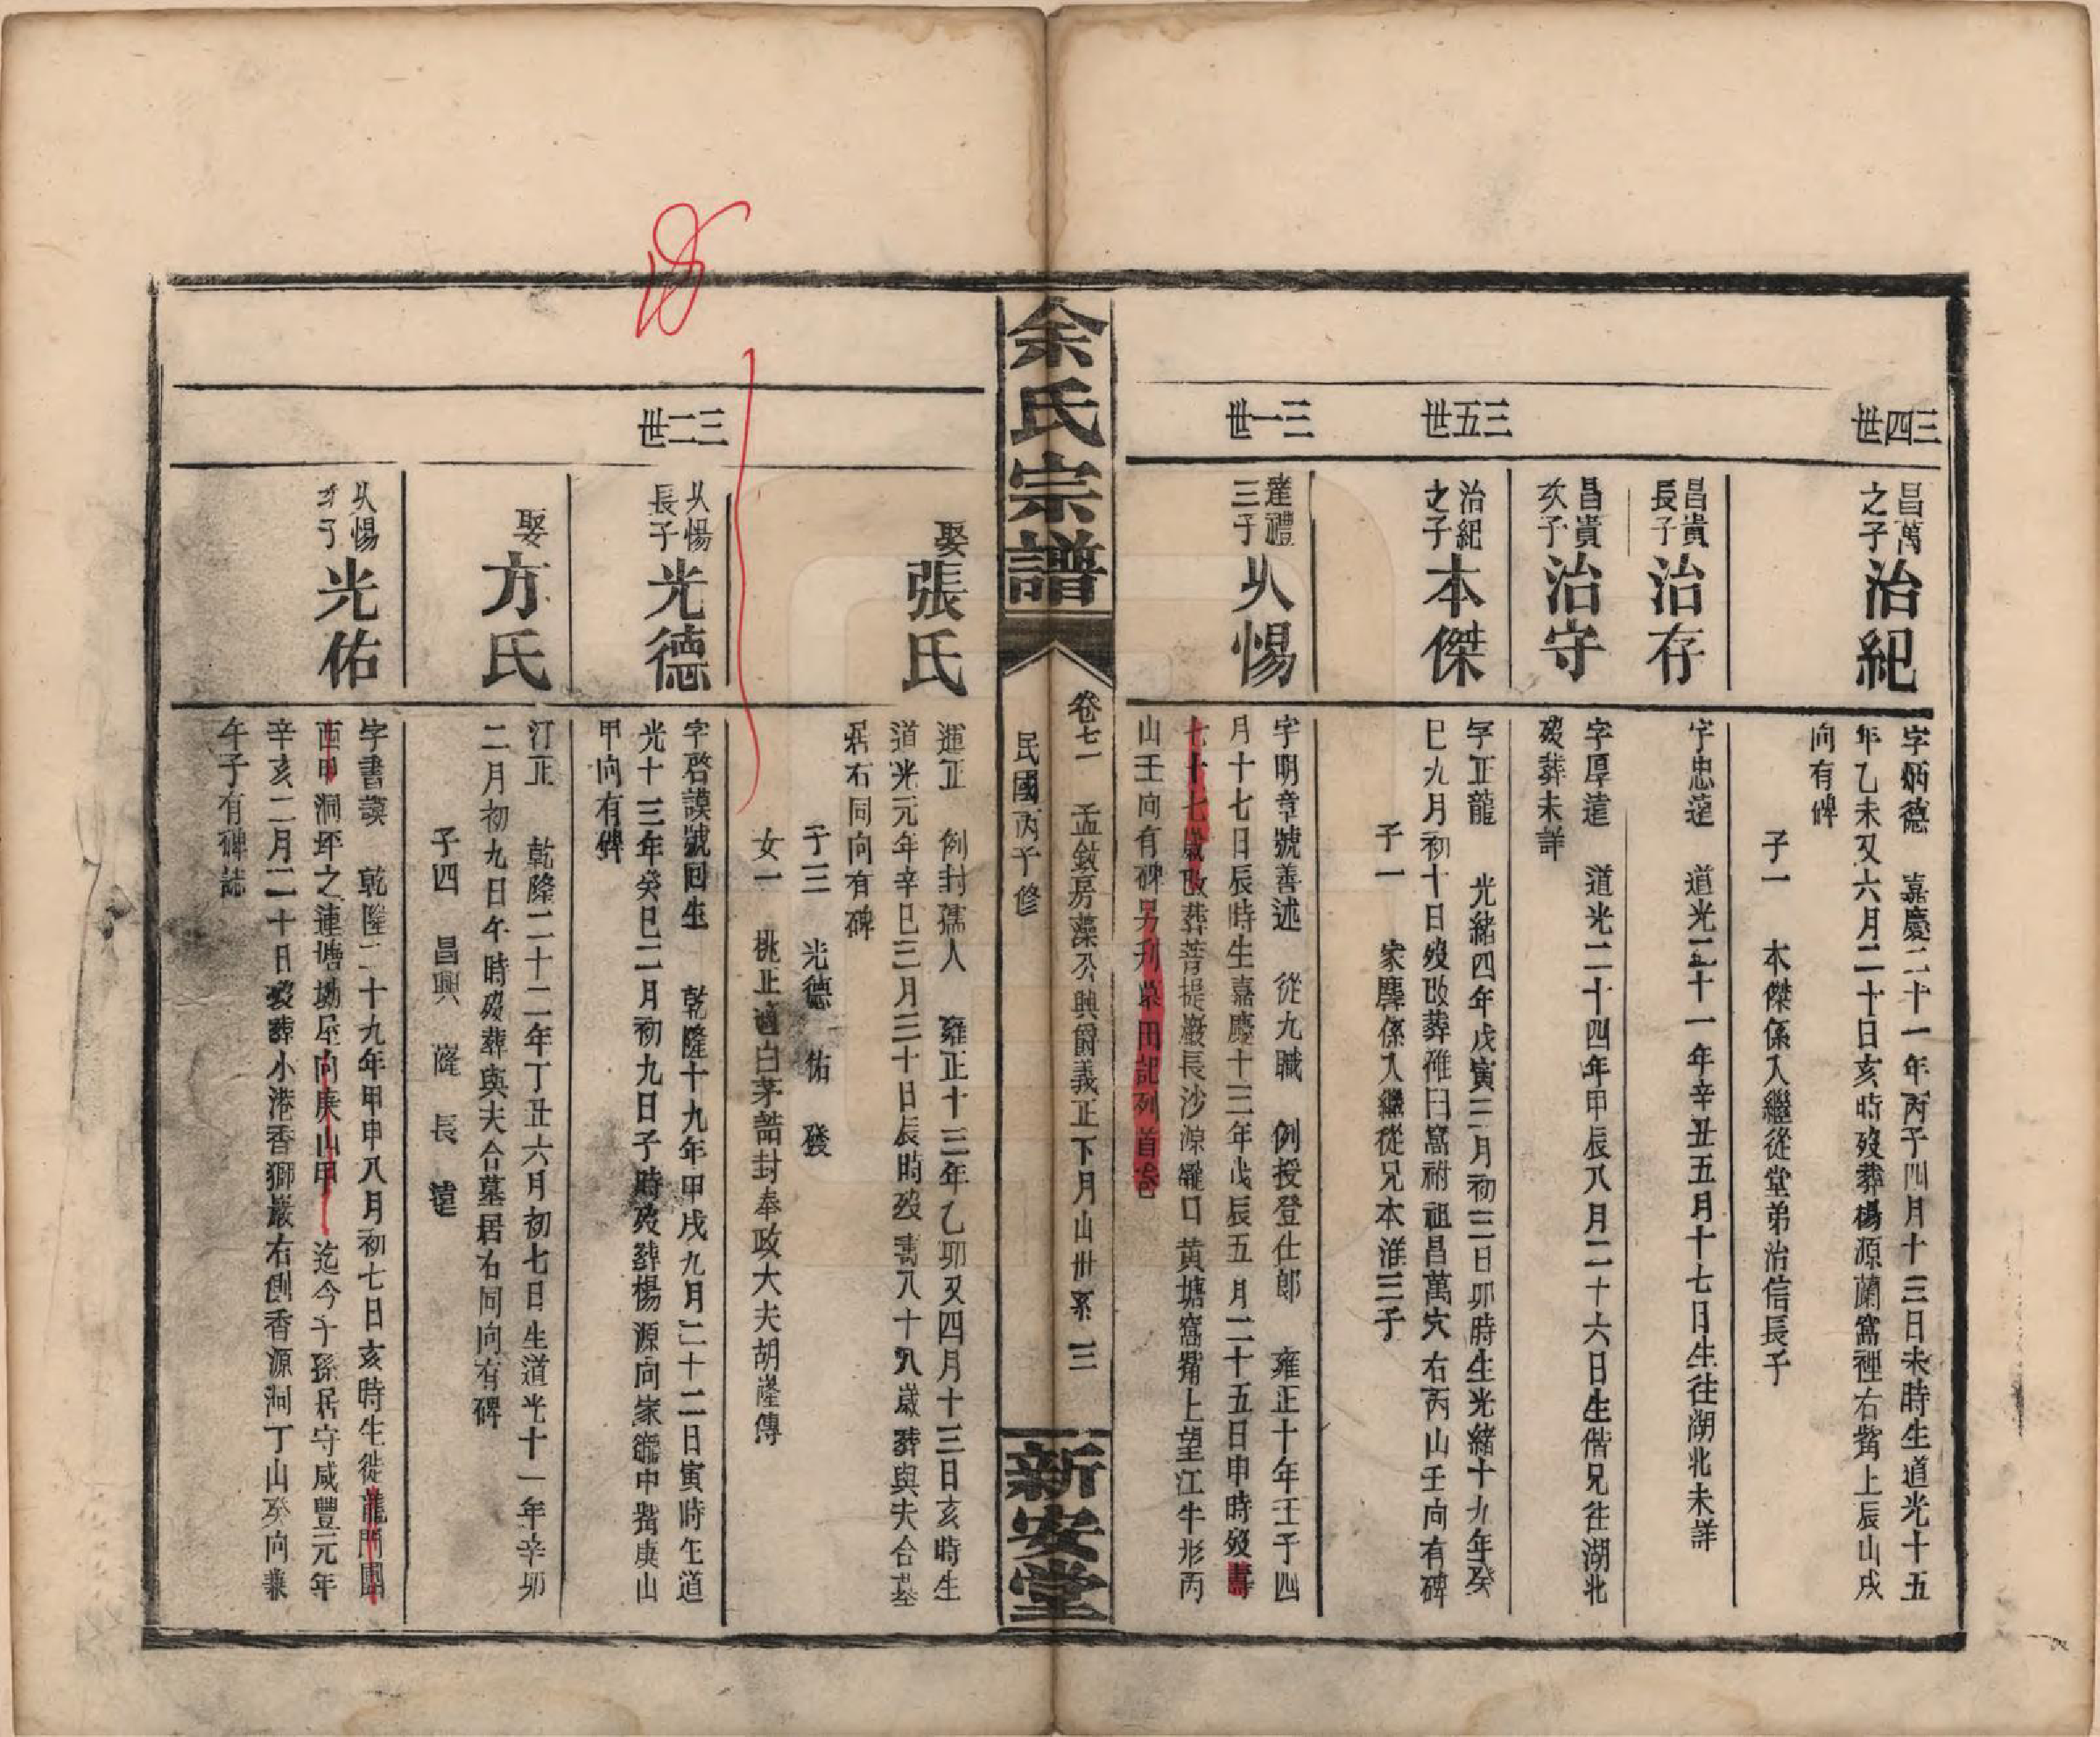 三四世
昌萬之子治紀
字炳德　嘉慶二十一年丙子四月十三日未時生道光十五
年乙未又六月二十日亥時歿葬楊源蘭窩裡右觜上辰山戌
向有碑
子一　本傑係入繼從堂弟治信長子
昌貴長子治存
字忠蓬　道光二十一年辛丑五月十七日生往湖北未詳
昌貴次子治守
字厚遠　道光二十四年甲辰八月二十六日生偕兄往湖北
歿葬未詳
三五世
治紀之子本傑
字正龍　光緒四年戊寅三月初三日卯時生光緒十九年癸
巳九月初十日歿改葬碓臼窩祔祖昌萬穴右丙山壬向有碑
子一　家塵係入繼從兄本淮三子
三一世
達禮三子以惕
字明章號善述　從九職　例授登仕郎　雍正十年壬子四
月十七日辰時生嘉慶十三年戊辰五月二十五日申時歿壽
七十七歲改葬菩提巖長沙源龍口黃塘窩觜上望江牛形丙
山壬向有碑另刋墓田記列首卷
余氏宗譜
卷七一　孟敍房藻公興爵義正下月山世系　三
民國丙子修
新安堂
娶張氏
運正　例封孺人　雍正十三年乙卯又四月十三日亥時生
道光元年辛巳三月三十日辰時歿壽八十八歲葬與夫合墓
居右同向有碑
子三　光德　佑　發
女一　桃正適白茅誥封奉政大夫胡隆傳
三二世
以惕長子光德
字啓謨號回生　乾隆十九年甲戌九月二十二日寅時生道
光十三年癸巳二月初九日子時歿葬楊源向家龍中觜庚山
甲向有碑
娶方氏
汀正　乾隆二十二年丁丑六月初七日生道光十一年辛卯
二月初九日午時歿葬與夫合墓居右同向有碑
子四　昌興　隆　長　遠
以惕次子光佑
字書謨　乾隆二十九年甲申八月初七日亥時生徙龍門團
酉甲洞坪之連塘坳屋向庚山甲　迄今子孫居守咸豐元年
辛亥二月二十日歿葬小港香獅巖右側香源洞丁山癸向兼
午子有碑誌